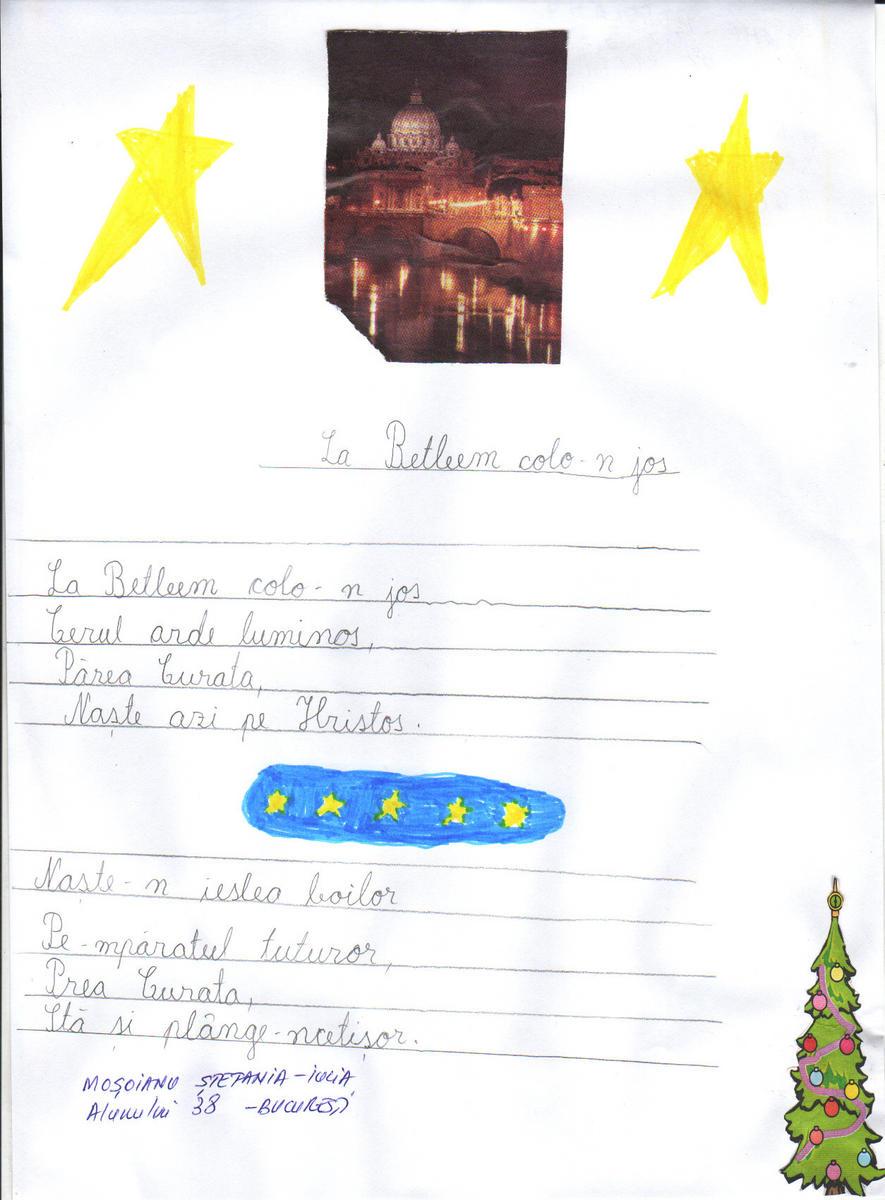 La Betleem colo-n jos
La Betleem colo-n jos
Cerul arde luminos,
Părea Curata,
Naște azi pe Hristos.
Naște-n ieslea boilor
Pe-mpăratul tuturor,
Prea Curata,
Stă și plânge-ncetișor.
MOȘOIANU ȘTEFANIA-IULIA
Alunului 38 -BUCUREȘTI